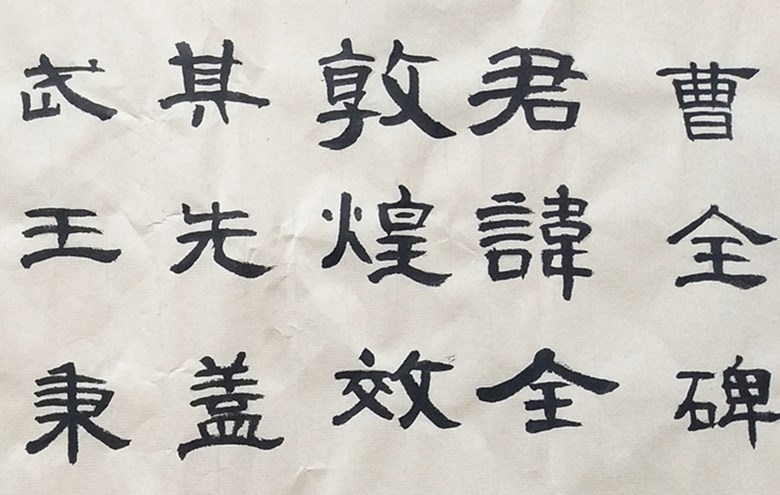 曹全碑
君諱全
敦煌效
其先蓋
武王秉